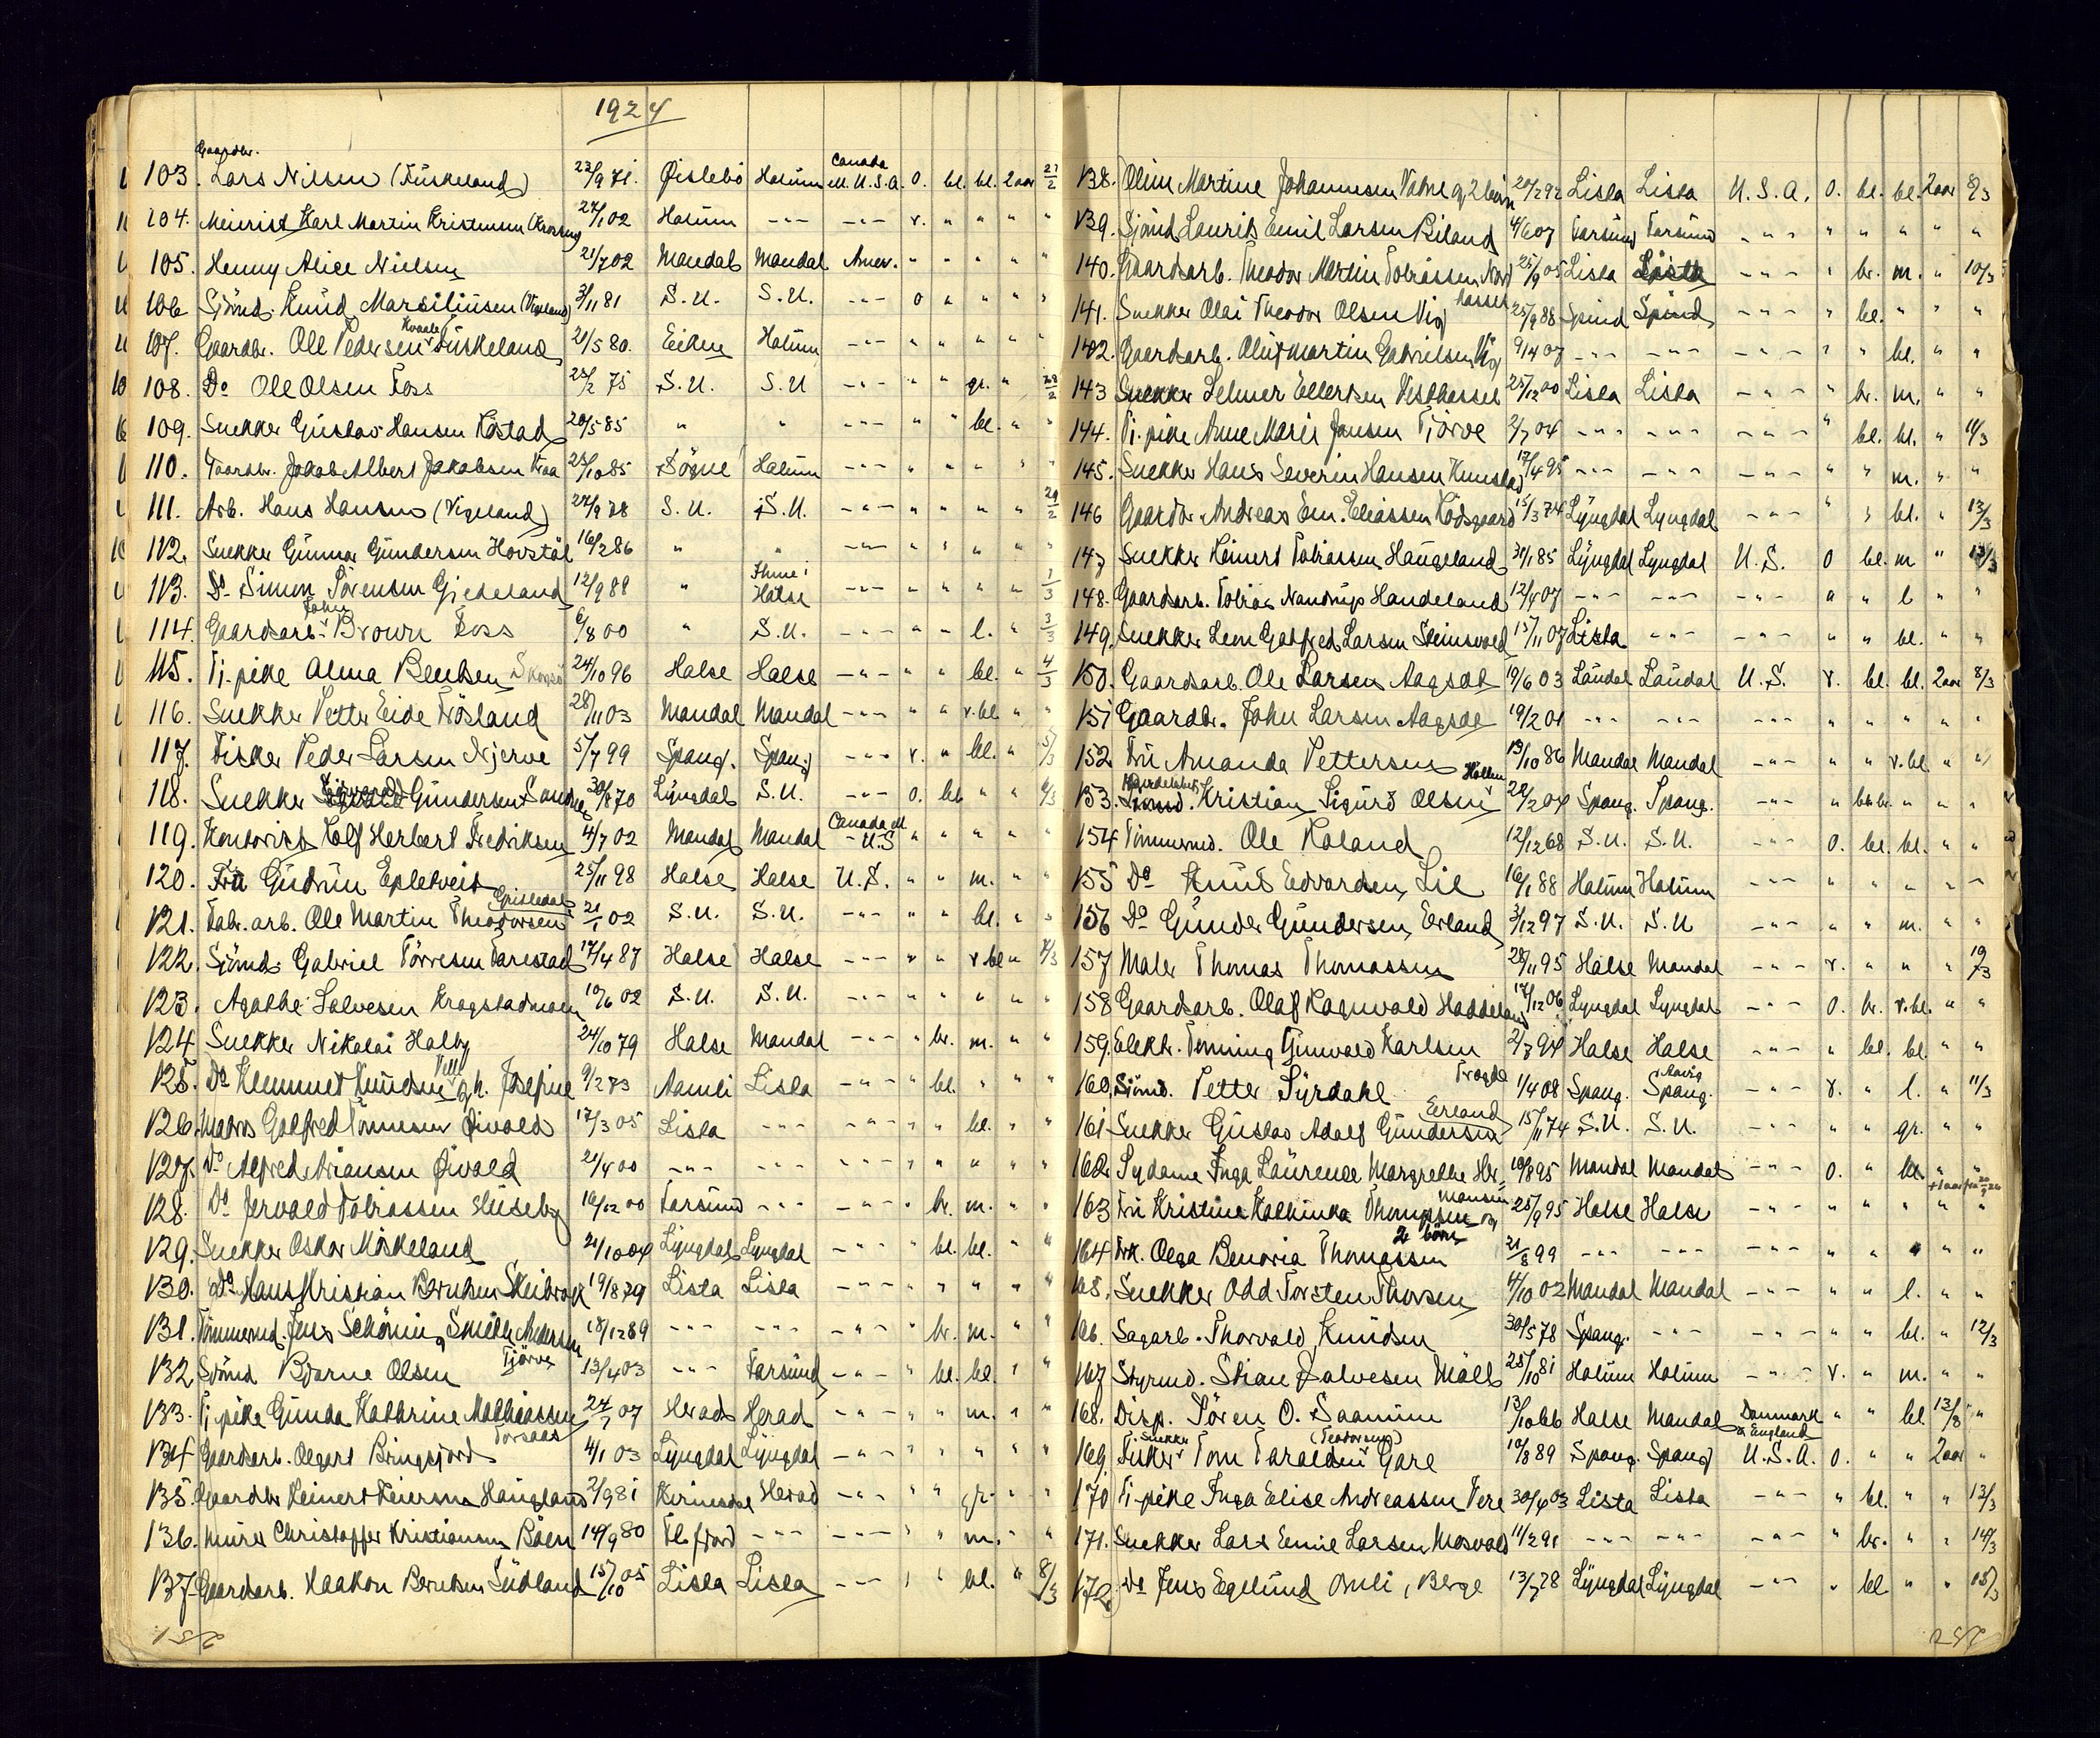 1924
103. Gaardbr. Lars Nilsen (Tüskeland) 23/9 71. Øislebö Halüm Canada M. U.S.A. O. bl. bl. 2 aar 27/2
104. Meierist Karl Martin Kristensen 24/1 02 Halüm - " - - " - v. " " " "
105. Henny Alice Nielsen 21/7 02 Mandal Mandal Amer. " " " " "
106 Sjömd. Knüd Marsiliüsen (Vigeland) 3/11 81 S.U. S.U. - " - O " " " "
107. Gaardbr. Ole Pedersen Kvaale Tüskeland 21/5 80. Eiken Halüm - " - " " " " "
108. Do Ole Olsen Foss 25/2 75 S.U. S.U - " - " " gr. " 28/2
109. Snekker Güstav Hansen Röstad 20/5 85 " " - " - " " bl. " "
110. Gaardbr. Jakob Albert Jakobsen Traa 25/10 85 Sögne Halüm - " - " " " " "
111. Arb. Hans Hansen (Vigeland) 24/9 78 S.U. S.U. - " - " " " " 29/2
112. Snekker Günnar Gündersen Hovstöl 16/2 86 " " - " - " " " " "
113. Do Simon Sörensen Gjedeland 12/9 88 " Ihme i Halse - " - " " " " 1/3
114. Gaardsarb. John Brown Foss 6/8 00 " S.U. - " - " " l. " 3/3
115. Tj. pike Alma Bentsen 24/10 96 Halse Halse - " - " " bl. " 4/3
116. Snekker Petter Eide Frösland 28/11 03 Mandal Mandal - " - " " v.bl. " "
117. Fisker Peder Larsen Njerve 5/7 99 Spang. Spang - " - v. " bl. " 5/3
118. Snekker Gündersen 30/8 70 Lyngdal S.U. - " - O. bl. " " 6/3
119. Kontorist Rolf Herbert Fredriksen 4/7 02 Mandal Mandal Canada M - U.S " " " " "
120. Frü Güdrün Epletveit 25/11 98 Halse Halse U.S. " " m. " "
121. Fabr. arb. Ole Martin Theodorsen 21/1 02 S.U. S.U. - " - " " bl. " "
122. Sjömd. Gabriel Törresen Farestad 17/4 87 Halse Halse - " - v " v.bl " 7/3
123. Agathe Salvesen Krogstadmoen 10/6 02 S.U. S.U. - " - " " " " "
124. Snekker Nikolai Halby 24/10 79 Halse Mandal - " - " br. m. " "
125. Do Klemmet Knüdsen 9/2 73 Aamli Lista - " - " bl. " " "
126. Matros Gotfred Tönnesen Øivold 17/3 05 Lista - " - - " - " " bl. " "
127. Do Alfred Øivold 21/4 00 - " - - " - - " - " " " " "
128. Do Tobiassen Hüseby 16/12 00 Farsünd - " - - " - " br. m. " "
129. Snekker Oskar Möskeland 21/10 04 Lyngdal Lyngdal - " - " bl. bl. " "
130. Do Hans Kristian Berntsen Skeibrok 19/8 79 Lista Lista - " - " " " " "
131. Tömmermd. Jens Schöning Smith Andersen 18/12 89 - " - - " - - " - " br. m. " "
132 Sjömd Bjarne Olsen Tjörve 13/4 03 - " - Farsünd - " - " bl. bl. " "
133. Tj. pike Günda Kathrine Mathiassen 24/7 07 Herad Herad - " - " " m. " "
134 Gaardsarb. Olgert Bringsjord 4/1 03 Lyngdal Lyngdal - " - " " " " "
135. Gaardbr Reinert Reiersen Haügland 2/9 81 Herad - " - " " gr. " "
136. Mürer Christoffer Kristiansen Böen 14/9 80 - " - - " - " " m. " "
137. Gaardsarb. Haakon Berntsen Südland 15/10 05 Lista Lista - " - " " bl. " 8/3
251.
138. Oline Martine Johannesen Vatne og 2 börn 20/2 92 Lista Lista U.S.A. O. bl. bl. 2 aar 8/3
139. Sjömd Laurits Emil Larsen Biland 4/6 07 Farsünd Farsünd - " - " " " " "
140. Gaardsarb. Theodor Martin Tobiassen 25/9 05 Lista Lista - " - " br. m. " 10/3
141. Snekker Olai Theodor Olsen Vig 25/9 88 Spind Spind - " - " bl. " " "
142. Gaardsarb. Olüf Martin Gabrielsen Vig 9/4 07 - " - - " - - " - " " bl. " "
143 Snekker Selmer Ellertsen Vesthassel 25/12 00 Lista Lista - " - " br. m. " "
144. Tj. pike Anne Marie Jansen Tjörve 2/7 04 - " - - " - - " - " bl. bl. " 11/3
145. Snekker Hans Severin Hansen 17/4 95 - " - - " - - " - " " m. " "
146 Gaardbr Andreas Em. Eliassen Rödsgaard 15/3 74 Lyngdal Lyngdal - " - " " bl. " 13/3
147 Snekker Reinert Tobiassen Haügeland 31/1 85 Lyngdal Lyngdal U.S. O bl. m " 13/3
148. Gaardsarb. Tobias Nandrup Handeland 12/4 07 - " - - " - - " - " " l " "
149. Snekker Leon Gotfred Larsen Steinsvold 15/11 07 Lista - " - - " - " " bl. " "
150. Gaardsarb. Ole Larsen Aagsæt 19/6 03 Laüdal Laüdal U.S. v. bl. bl. 2 aar 8/3
151 Gaardbr. John Larsen Aagsæt 19/2 01 - " - - " - - " - " " " " "
152. Frü Amanda Pettersen 13/10 86 Mandal Mandal - " - " " v.bl. " "
153. Handelsbetj. Kristian Sigürd Olsen 22/2 04 Spang. Spang. - " - " " " "
154 Tömmermd. Ole Roland 12/12 68 S.U. S.U. - " - O. bl. bl. " "
155 Do Knüt Edvardsen, Lie 16/1 88 Halüm Halüm - " - " " " " "
156 Do Günder Gündersen, Erland 3/12 97 S.U. S.U - " - " " m. " "
157 Maler Thomas Thomassen 28/11 95 Halse Mandal - " - v. " " " 10/3
158 Gaardsarb. Olaf Ragnvald Haddeland 17/12 06 Lyngdal Lyngdal - " - O. br. v.bl. " "
159. Elektr. Gunvald Karlsen 2/7 94 Halse Halse - " - " bl. bl. " "
160. Sjömd. Petter Syrdahl Trogde 1/4 08 Spang. Spang. - " - v. " l. " 11/3
161 Snekker Güstav Adolf Gündersen Eerland 15/11 74 S.U. S.U. - " - " " gr. " "
162. Sydame Inga Laürence Margrethe Her-mansen 10/8 95 Mandal Mandal - " - O. " bl. " "
163 Frü Kristine Kathinka Thompsen og 2 börn 25/9 95 Halse Halse - " - " " " " "
164 Frk. Olga Benovia Thomassen 21/8 99 - " - - " - - " - " " " " "
165. Snekker Odd Torsten Thorsen 4/10 02 Mandal Mandal - " - " " l. " "
166. Sagarb. Thorvald Knüdsen 30/5 78 Spang. - " - - " - " " bl. " 12/3
167 Styrmd. Stian Salvesen Möll 25/10 81 Halüm Halüm - " - v. " m. " "
168. Disp. Sören O. Saanüm 13/10 66 Halse Mandal Danmark & England " " bl 13/8 "
169. Fisker T. Snekker Tom Taraldsen (Teodorsen) Gare 10/8 89 Spang. Spang U.S.A. O. " " 2 aar "
170 Tj-pike Inga Elise Andreassen Vere 30/4 03 Lista Lista - " - " bl. " " 13/3
171. Snekker Lars Emil Larsen Mosvold 11/2 91 - " - - " - - " - " br. " " 14/3
172. Do Jens Egelünd Omli, Berge 13/7 78 Lyngdal Lyngdal - " - " bl. " " 15/3
252